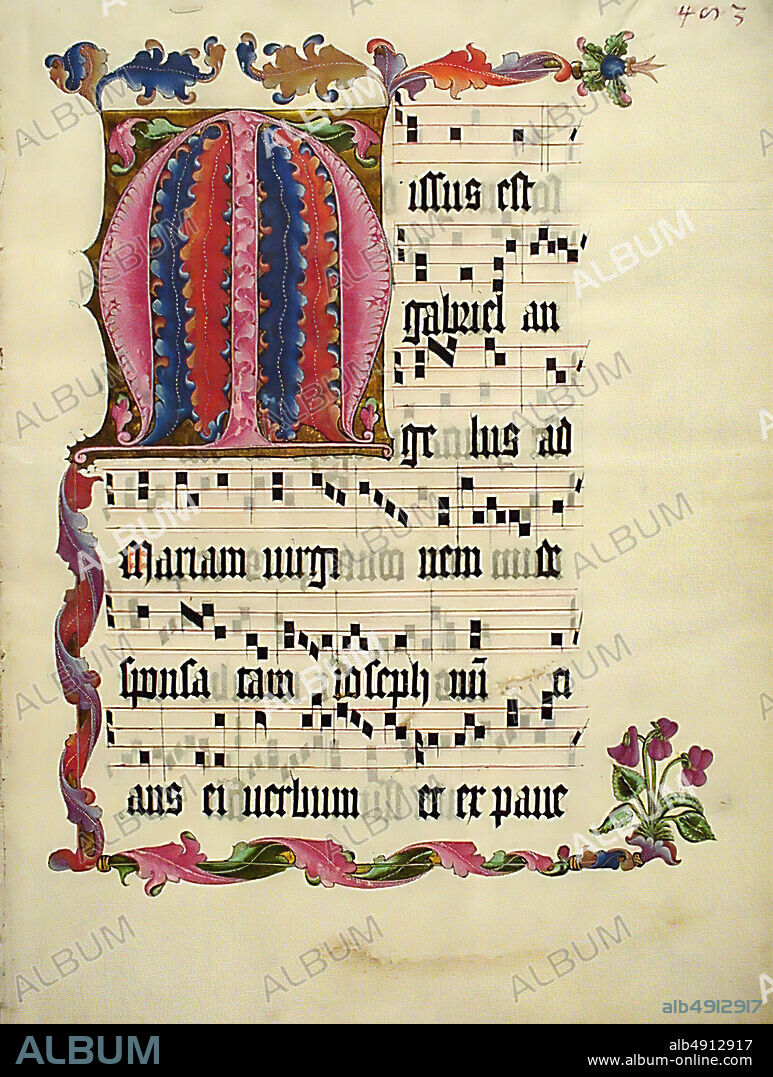 403
Missus est
gabriel an
ge lus ad
Mariam uirgi nem de
sponsa tam ioseph nuñ ci
ans ei uerbum et ex paue
ALBUM
alb4912917
ALBUM
alb4912917
www.album-online.com